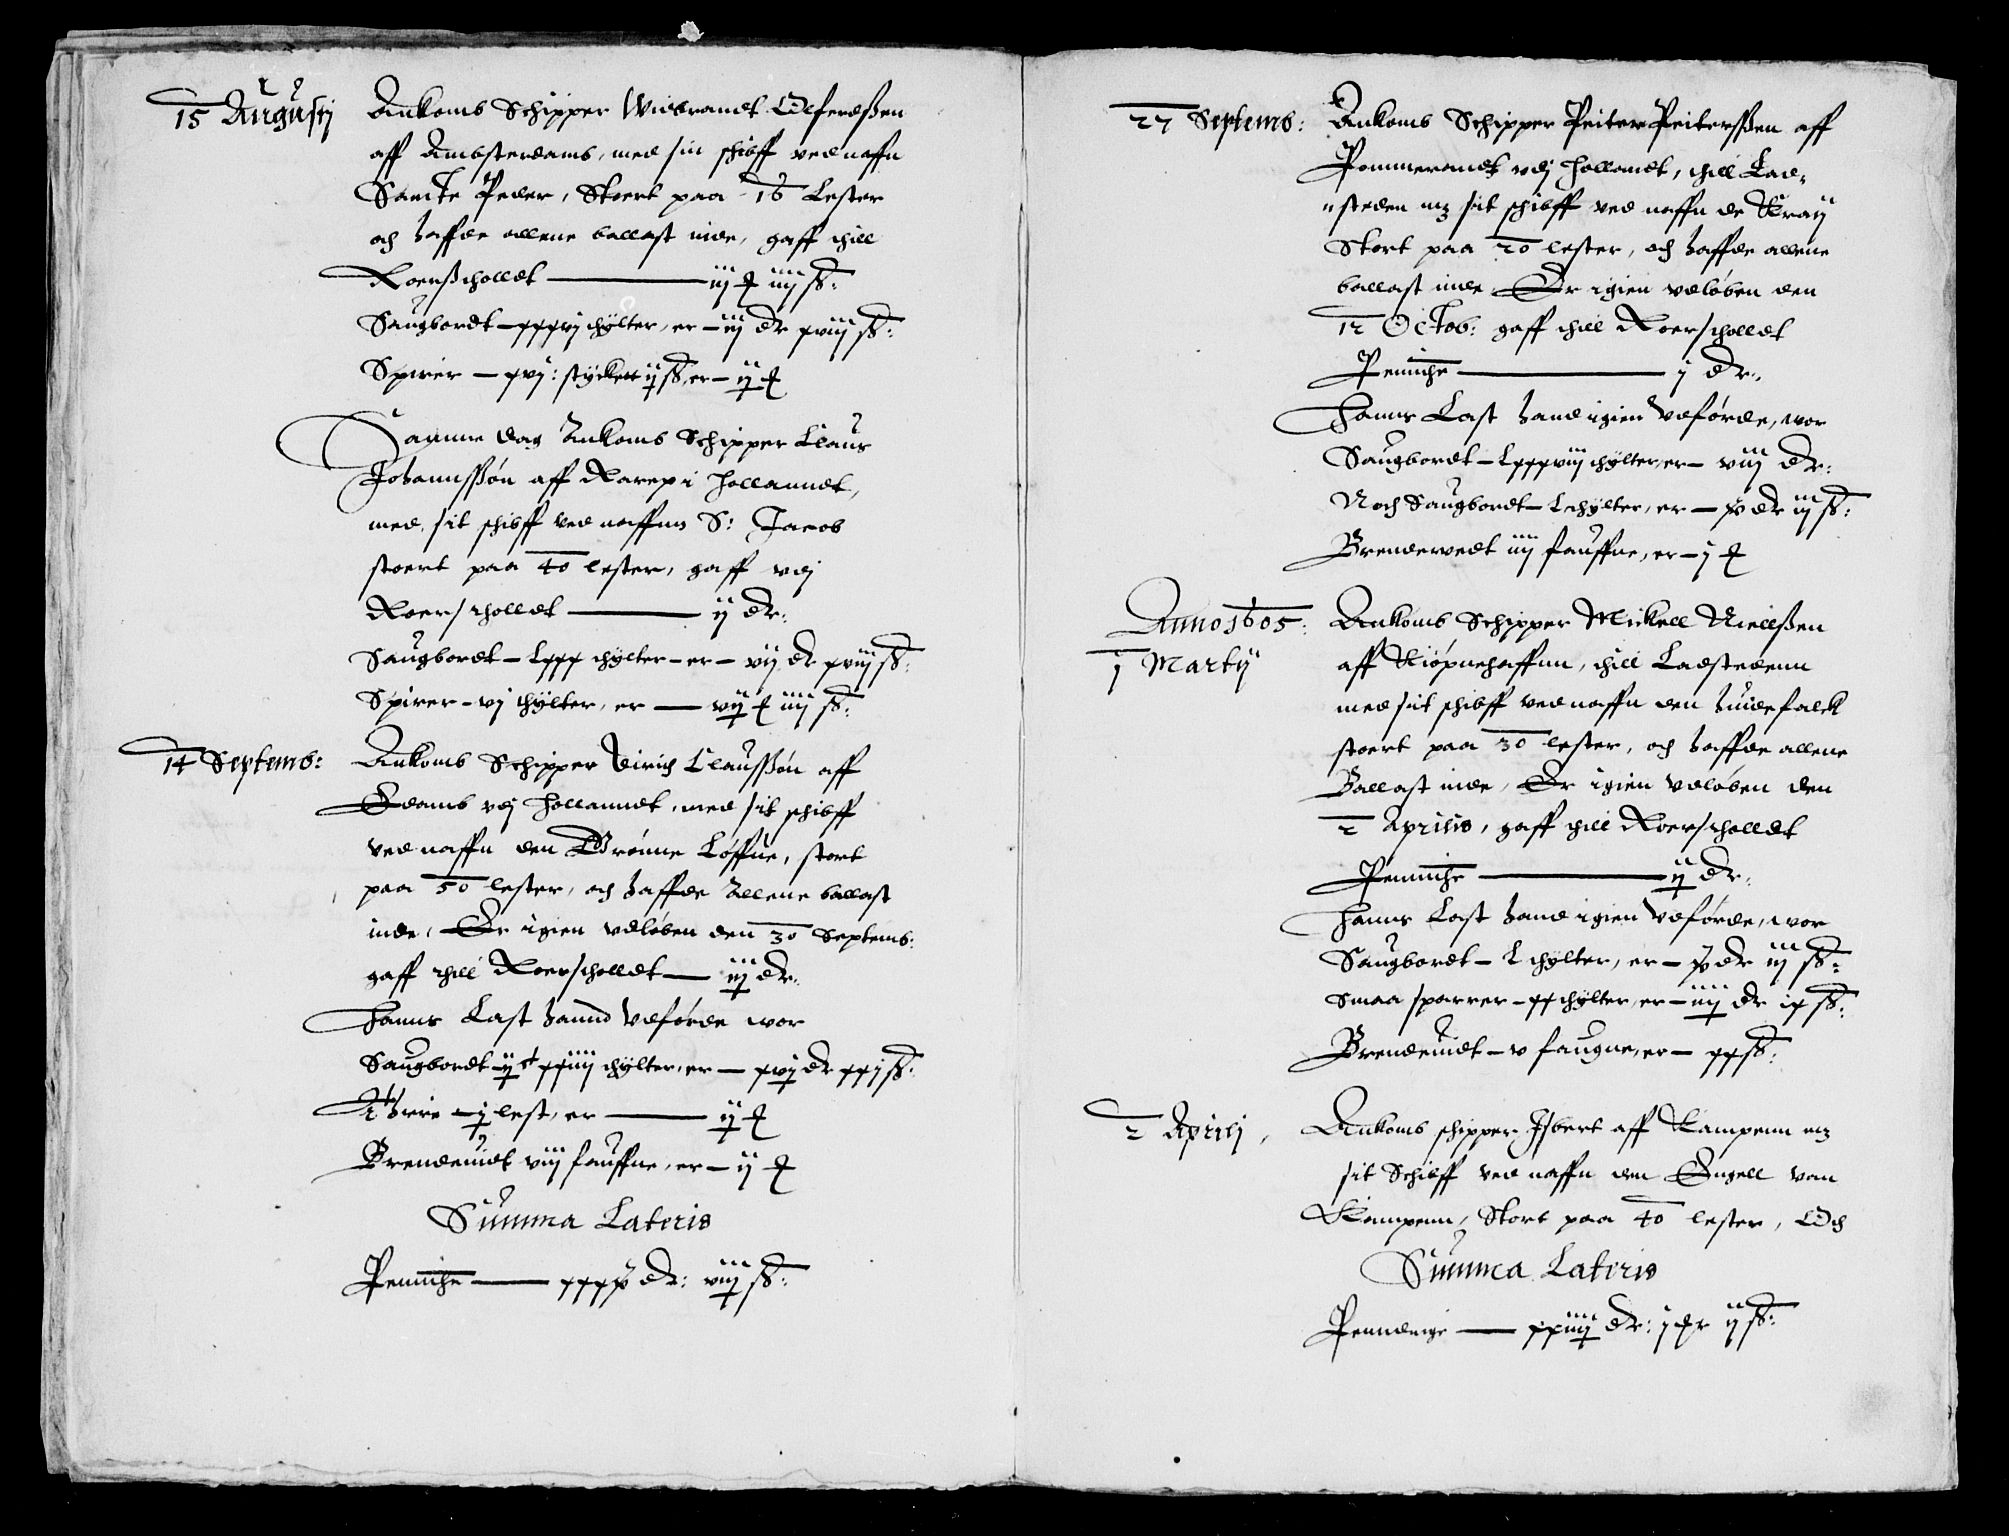 15 Augustj Ankomb Schipper Wiibrandt Olferdßen
aff Ambsterdamb, med sin schibff ved naffn
Sancte Peder, Stoert paa 16 Lester
och haffde allene ballast inde, gaff thill
Roerßcholldt — iij ꝗ iiij sß:
Saugbordt – xxxvj thylter, er – iij dr xviij sß:
Spirer — xvj: styckett ij sß, er – ij ꝗ
Samme dag Ankomb Schipper Claus
Johannssøn aff Rarep i Hollanndt,
med sit schibff ved naffnn S: Jacob
stoert paa 40 lester, gaff vdj
Roerscholldt — ij dr:
Saugbordt – Lxxx thylter – er – vij dr xviij sß:
Spirer – vj thylter, er — vij ꝗ iiij sß:
14 Septemb: Ankomb Schipper Dirich Claussøn aff
Edamb vdj Hollanndt, med sit schibff
ved naffn den Grønne Løffue, stort
paa 50 lester, och haffde Allene ballast
inde, Er igien vdløben den 30 Septemb:
gaff thill Roerscholldt — iij dr:
Hanns Last hannd vdførde wor
Saugbordt ij c xxiiij thylter, er — xvj dr xxj sß:
Thrre – j lest, er — ij ꝗ
Brendeuidt viij fauffne, er – ij ꝗ
Summa Lateris
Penninge — xxxx dr: viij sß:
27 Septemb: Ankomb Schipper Peiter Peiterssen aff
Pommerandt vdj Hollandt, thill Lad¬
steden mz sit schibff ved naffn de Kraij
Stort paa 20 lester, och haffde allene
ballast inde Er igien vdløben den
12 Octob: gaff thill Roerscholldt
Peninge — j dr:
Hanns Last hand igien vdførde, wor
Saugbordt – Lxxxviij thylter, er – viij dr:
Noch Saugbordt – L thylter, er – v dr iij sß:
Brendevedt iiij fauffne, er – j ꝗ
Anno 1605: Ankomb Schipper Mickell Niellßen
j Martij aff Kiøpnehaffnn, thill Ladstedenn
med sit schibff ved naffn den huide falck
stoert paa 30 lester, och haffde allene
Ballast inde, Er igien vdløben den
2 Aprilis, gaff thill Roerscholldt
Penninge — ij dr:
Hanns Last hand igien vdførde, wor
Saugbordt – L thylter, er – v dr iij sß:
Smaa sparrer – xx thylter, er – iiij dr ix sß:
Brendeuidt – v faugne, er – xx sß:
2 Aprilj, Ankomb schipper Isbert aff Kampenn mz
sit Schibff ved naffn den Engell van
Kampenn, Stort paa 40 lester, Och
Summa Lateris
Penndinge — xxiiij dr: j ꝗr ij sß: